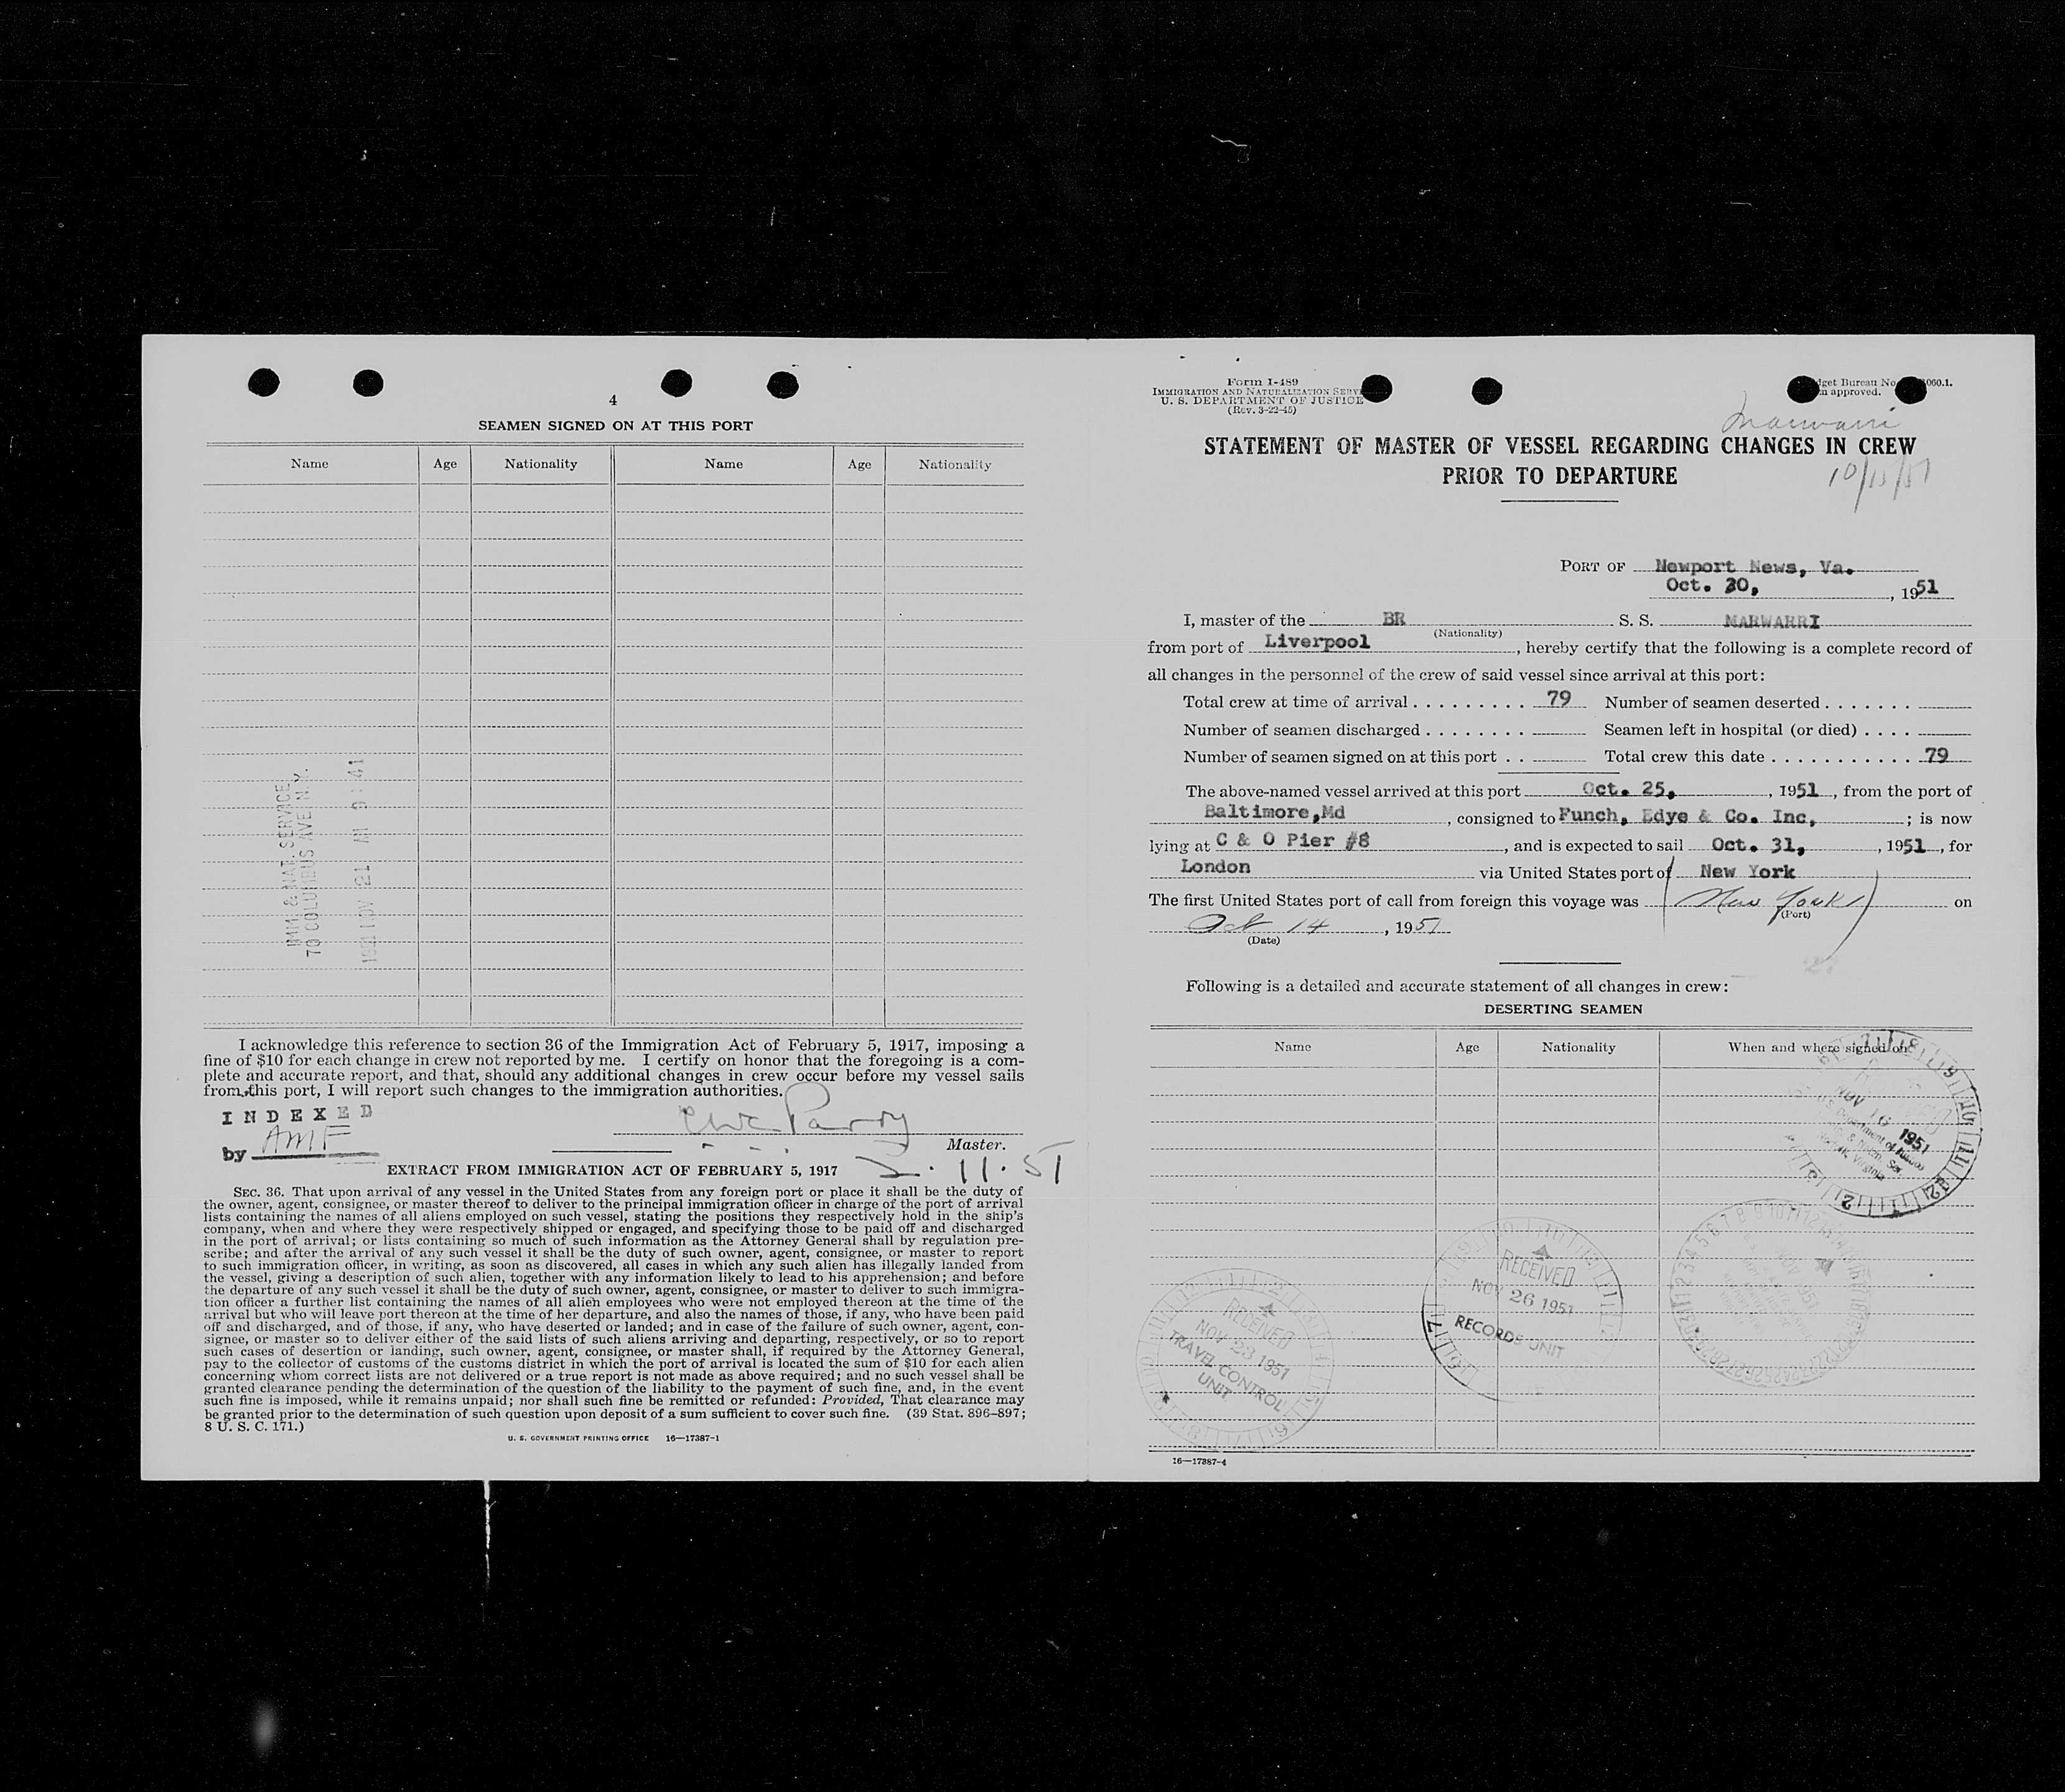 4
SEAMEN SIGNED ON AT THIS PORT
Name Age Nationality Name Age Nationality
IMM. & NAT. SERVICE
70 COLUMBUS AVE. N.Y.
1951 NOV 21 AM 9:41
I acknowledge this reference to section 36 of the Immigration Act of February 5, 1917, imposing a
fine of $10 for each change in crew not reported by me. I certify on honor that the foregoing is a com-
plete and accurate report, and that, should any additional changes in crew occur before my vessel sails
from this port, I will report such changes to the immigration authorities.
INDEXED
by AMF
Parry
Master.
2.11.51
EXTRACT FROM IMMIGRATION ACT OF FEBRUARY 5, 1917
SEC. 36. That upon arrival of any vessel in the United States from any foreign port or place it shall be the duty of
the owner, agent, consignee, or master thereof to deliver to the principal immigration officer in charge of the port of arrival
lists containing the names of all aliens employed on such vessel, stating the positions they respectively hold in the ship's
company, when and where they were respectively shipped or engaged, and specifying those to be paid off and discharged
in the port of arrival; or lists containing so much of such information as the Attorney General shall by regulation pre-
scribe; and after the arrival of any such vessel it shall be the duty of such owner, agent, consignee, or master to report
to such immigration officer, in writing, as soon as discovered, all cases in which any such alien has illegally landed from
the vessel, giving a description of such alien, together with any information likely to lead to his apprehension; and before
the departure of any such vessel it shall be the duty of such owner, agent, consignee, or master to deliver to such immigra-
tion officer a further list containing the names of all alien employees who were not employed thereon at the time of the
arrival but who will leave port thereon at the time of her departure, and also the names of those, if any, who have been paid
off and discharged, and of those, if any, who have deserted or landed; and in case of the failure of such owner, agent, con-
signee, or master so to deliver either of the said lists of such aliens arriving and departing, respectively, or so to report
such cases of desertion or landing, such owner, agent, consignee, or master shall, if required by the Attorney General,
pay to the collector of customs of the customs district in which the port of arrival is located the sum of $10 for each alien
concerning whom correct lists are not delivered or a true report is not made as above required; and no such vessel shall be
granted clearance pending the determination of the question of the liability to the payment of such fine, and, in the event
such fine is imposed, while it remains unpaid; nor shall such fine be remitted or refunded: Provided, That clearance may
be granted prior to the determination of such question upon deposit of a sum sufficient to cover such fine. (39 Stat. 896-897;
8 U. S. C. 171.)
U. S. GOVERNMENT PRINTING OFFICE 16—17387-1
Form I-489
IMMIGRATION AND NATURALIZATION SERV
U. S. DEPARTMENT OF JUSTICE
(Rev. 3-22-45)
get Bureau No. 060.1.
approved.
Marwarri
STATEMENT OF MASTER OF VESSEL REGARDING CHANGES IN CREW
PRIOR TO DEPARTURE
10/15/51
PORT OF Newport News, Va.
Oct. 30, 1951
I, master of the BR S. S. MARWARRI
(Nationality)
from port of Liverpool, hereby certify that the following is a complete record of
all changes in the personnel of the crew of said vessel since arrival at this port:
Total crew at time of arrival 79 Number of seamen deserted
Number of seamen discharged Seamen left in hospital (or died)
Number of seamen signed on at this port Total crew this date 79
The above-named vessel arrived at this port Oct. 25, 1951, from the port of
Baltimore,Md, consigned to Funch, Edye & Co. Inc, ; is now
lying at C & O Pier #8, and is expected to sail Oct. 31, 1951, for
London via United States port of New York
The first United States port of call from foreign this voyage was New York on
(Port)
Oct 14, 1951
(Date)
Following is a detailed and accurate statement of all changes in crew:
DESERTING SEAMEN
Name Age Nationality When and where signed on
NOV 16 1951
RECEIVED
NOV 26 1951
RECORDS UNIT
RECEIVED
NOV 23 1951
TRAVEL CONTROL
UNIT
NOV 1951
16—17387-4